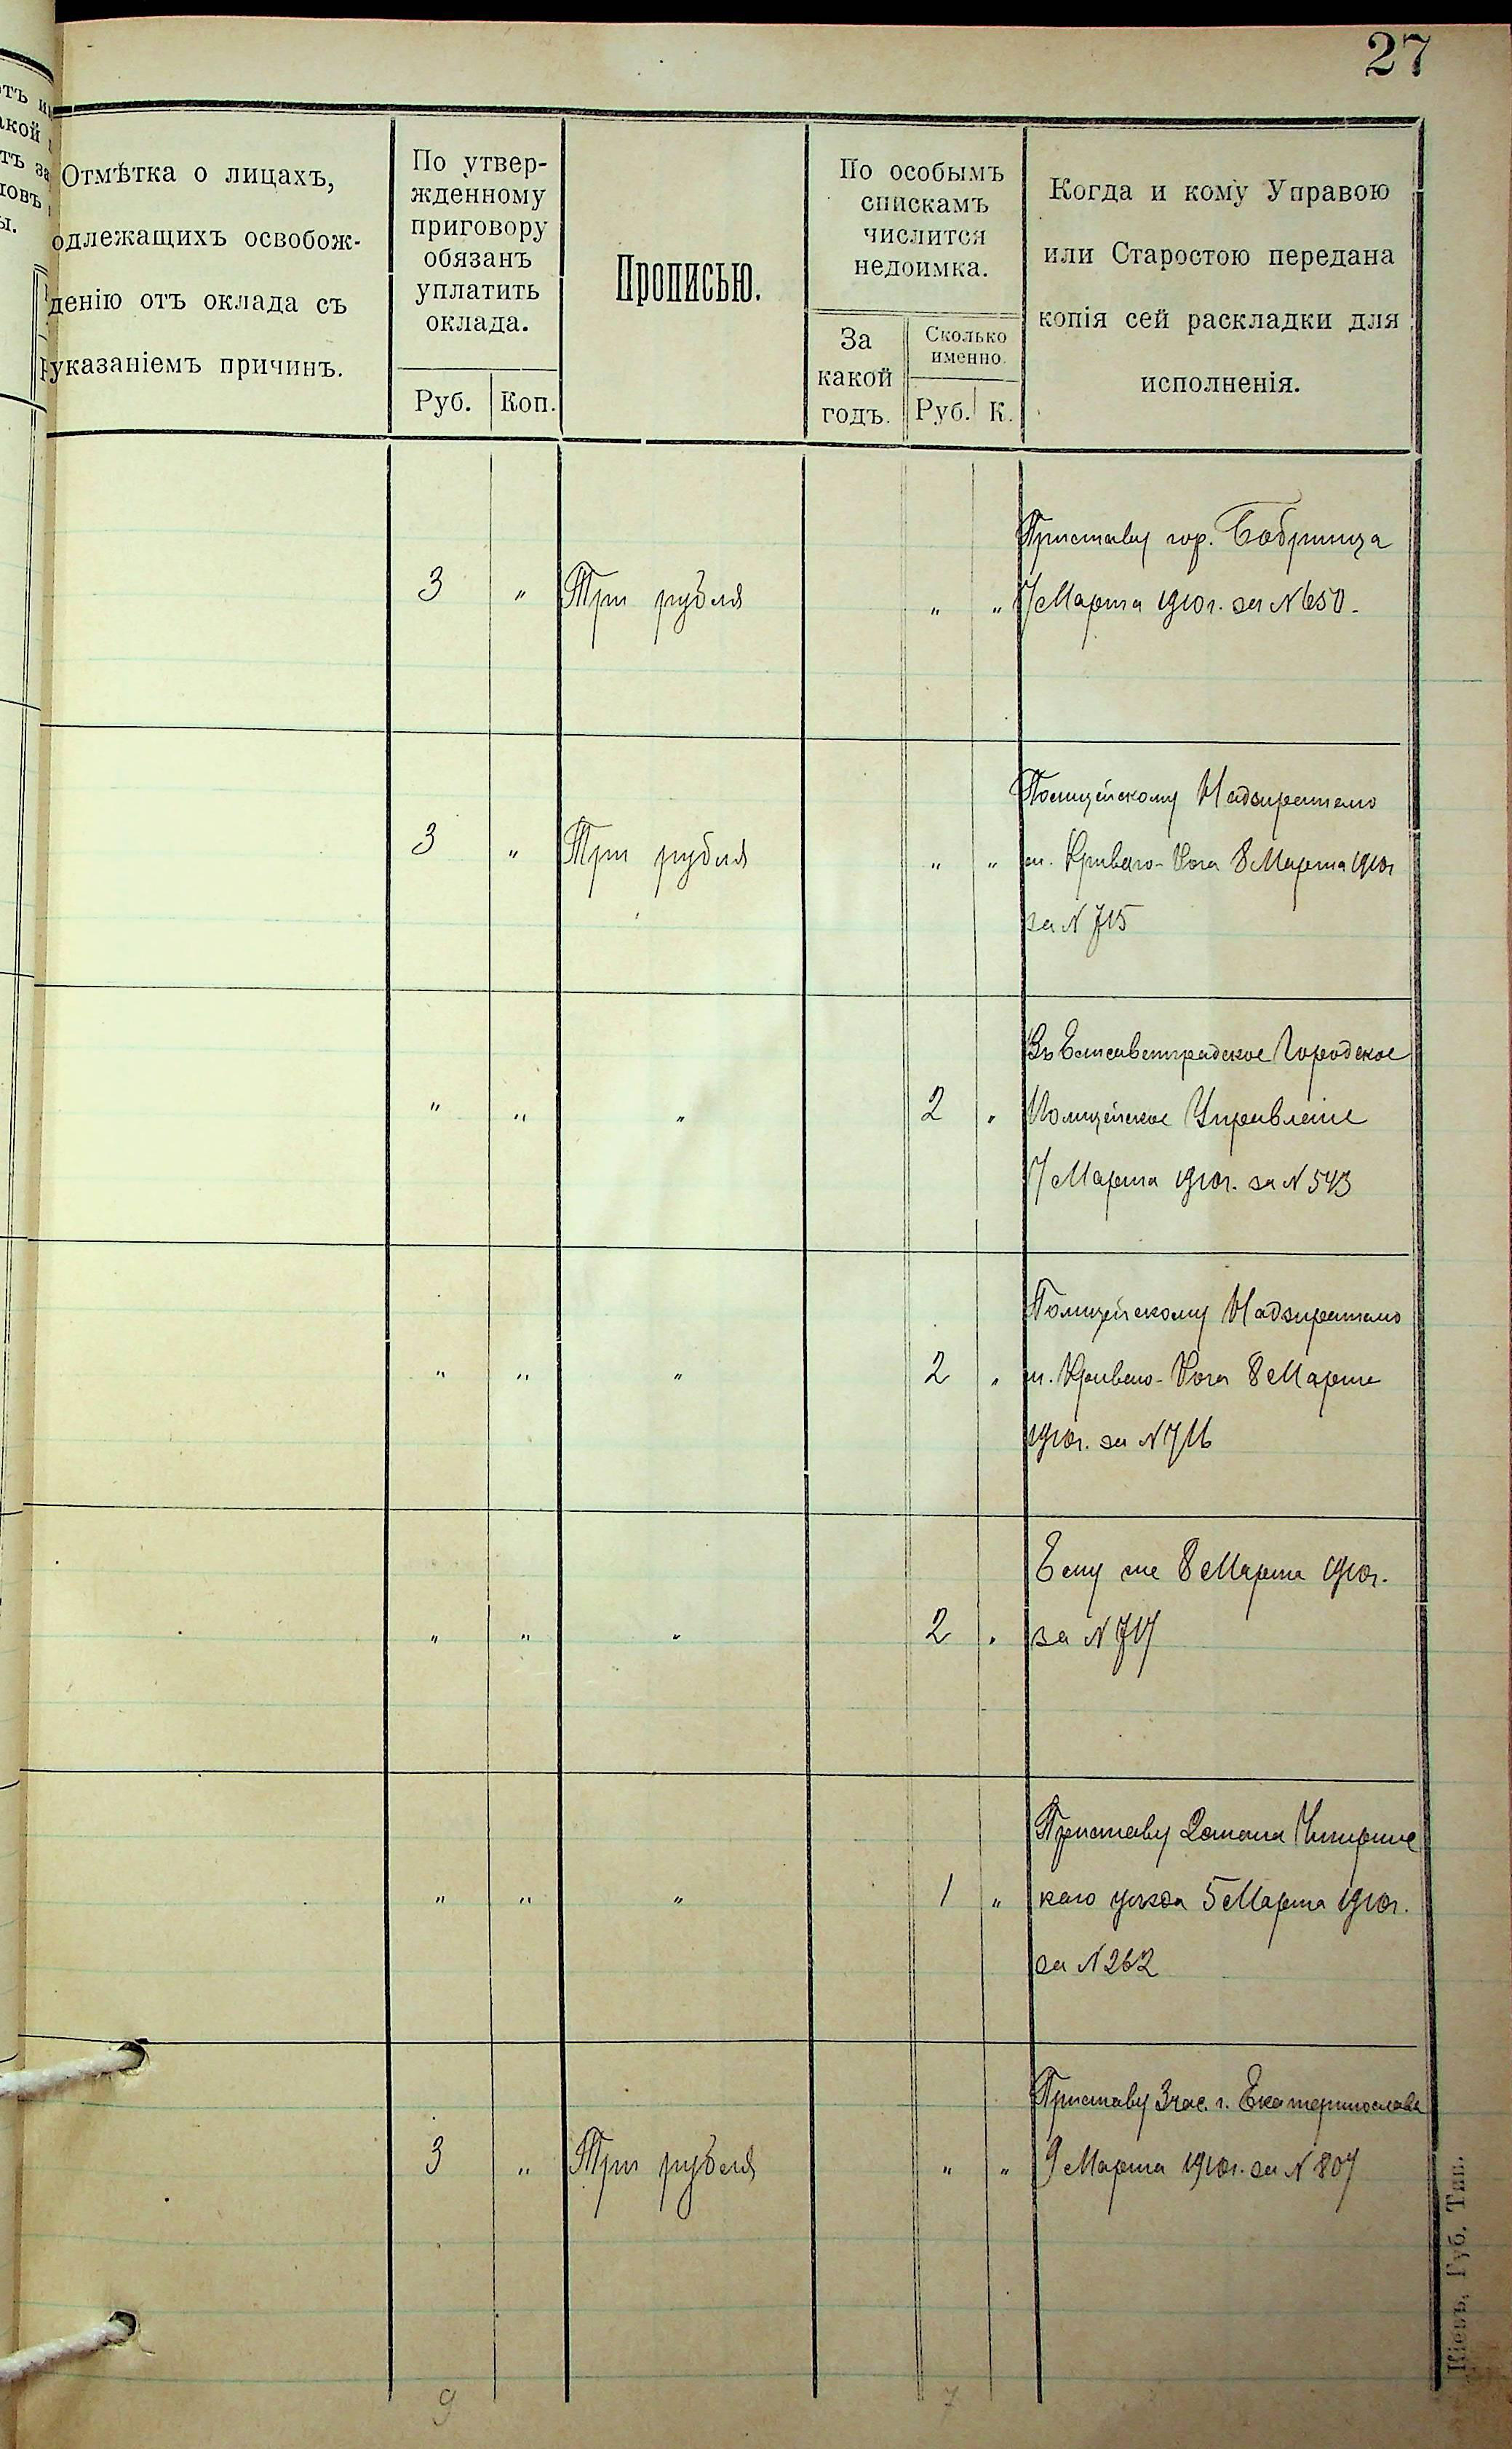 27
Отмѣтка о лицахъ,
одлежащихъ освобож-
денію отъ оклада съ
указаніемъ причинъ.
По утвер-
жденному
приговору
обязанъ
уплатить
оклада.
Руб. Коп.
Прописью.
По особымъ
спискамъ
числится
недоимка.
За
какой
годъ.
Сколько
именно.
Руб. К.
Когда и кому Управою
или Старостою передана
копія сей раскладки для
исполненія.
Приставу гор. Бобринца
3 " Три рубля " " 7 Марта 1910г. за N 650.
Полицейскому Надзирателю
3 " Три рубля " " м. Криваго-Рога 8 Марта 1910г
за N 715
Въ Елисаветградское Городское
" " " 2 " Полицейское Управленіе
7 Марта 1910г. за N 543
Полицейскому Надзирателю
" " " 2 " м. Криваго-Рога 8 Марта
1910г. за N 716
Ему же 8 Марта 1910г.
" " " 2 " за N 717
Приставу 2 стана Чигиринс
" " " 1 " каго уѣзда 5 Марта 1910г.
за N 262
Приставу 3 час. г. Екатеринослава
3 " Три рубля " " 9 Марта 1910г. за N 807
9 7
Кіевъ, Губ. Тип.